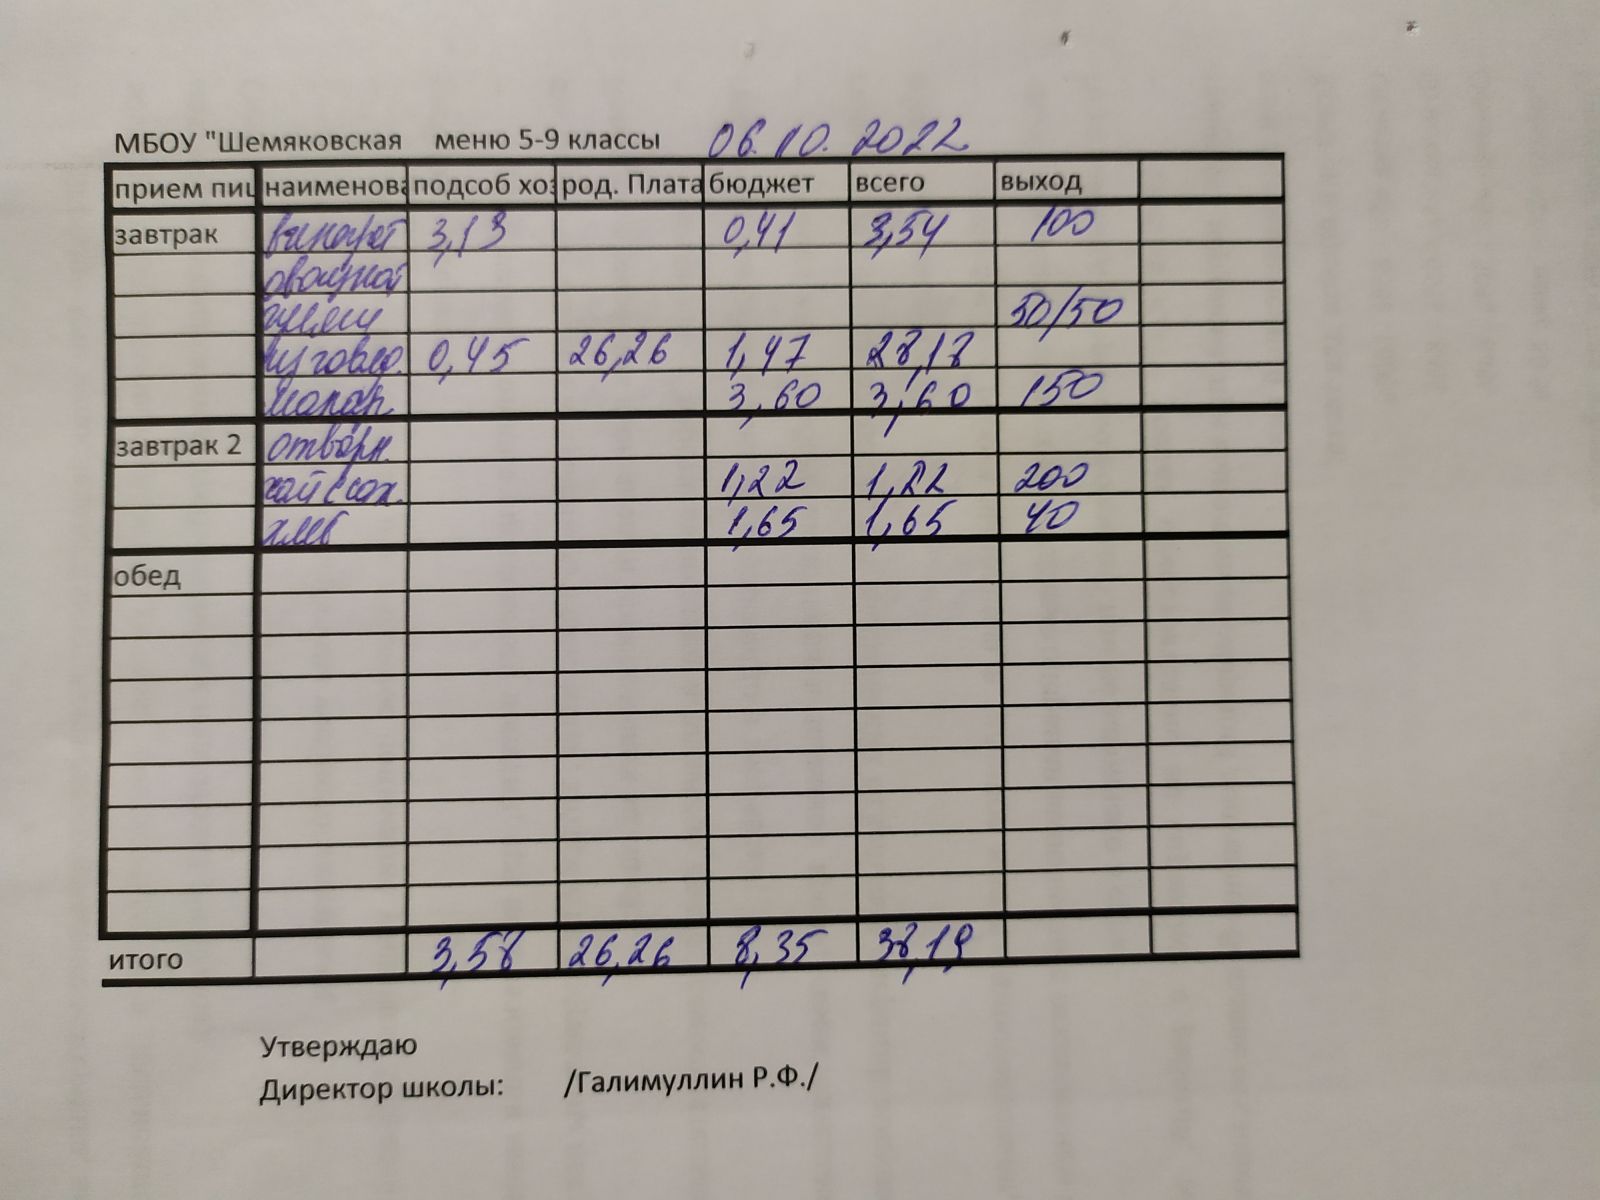 МБОУ "Шемяковская меню 5-9 классы 06.10.2022
прием пищ наименова подсоб хоз род. Плата бюджет всего выход
завтрак винегрет 3,13 0,41 3,54 100
овощной
гуляш 50/50
из говяд. 0,45 26,26 1,47 28,18
макар. 3,60 3,60 150
завтрак 2 отварн.
чай с сах. 1,22 1,22 200
хлеб 1,65 1,65 40
обед
итого 3,58 26,26 8,35 38,19
Утверждаю
Директор школы: /Галимуллин Р.Ф./